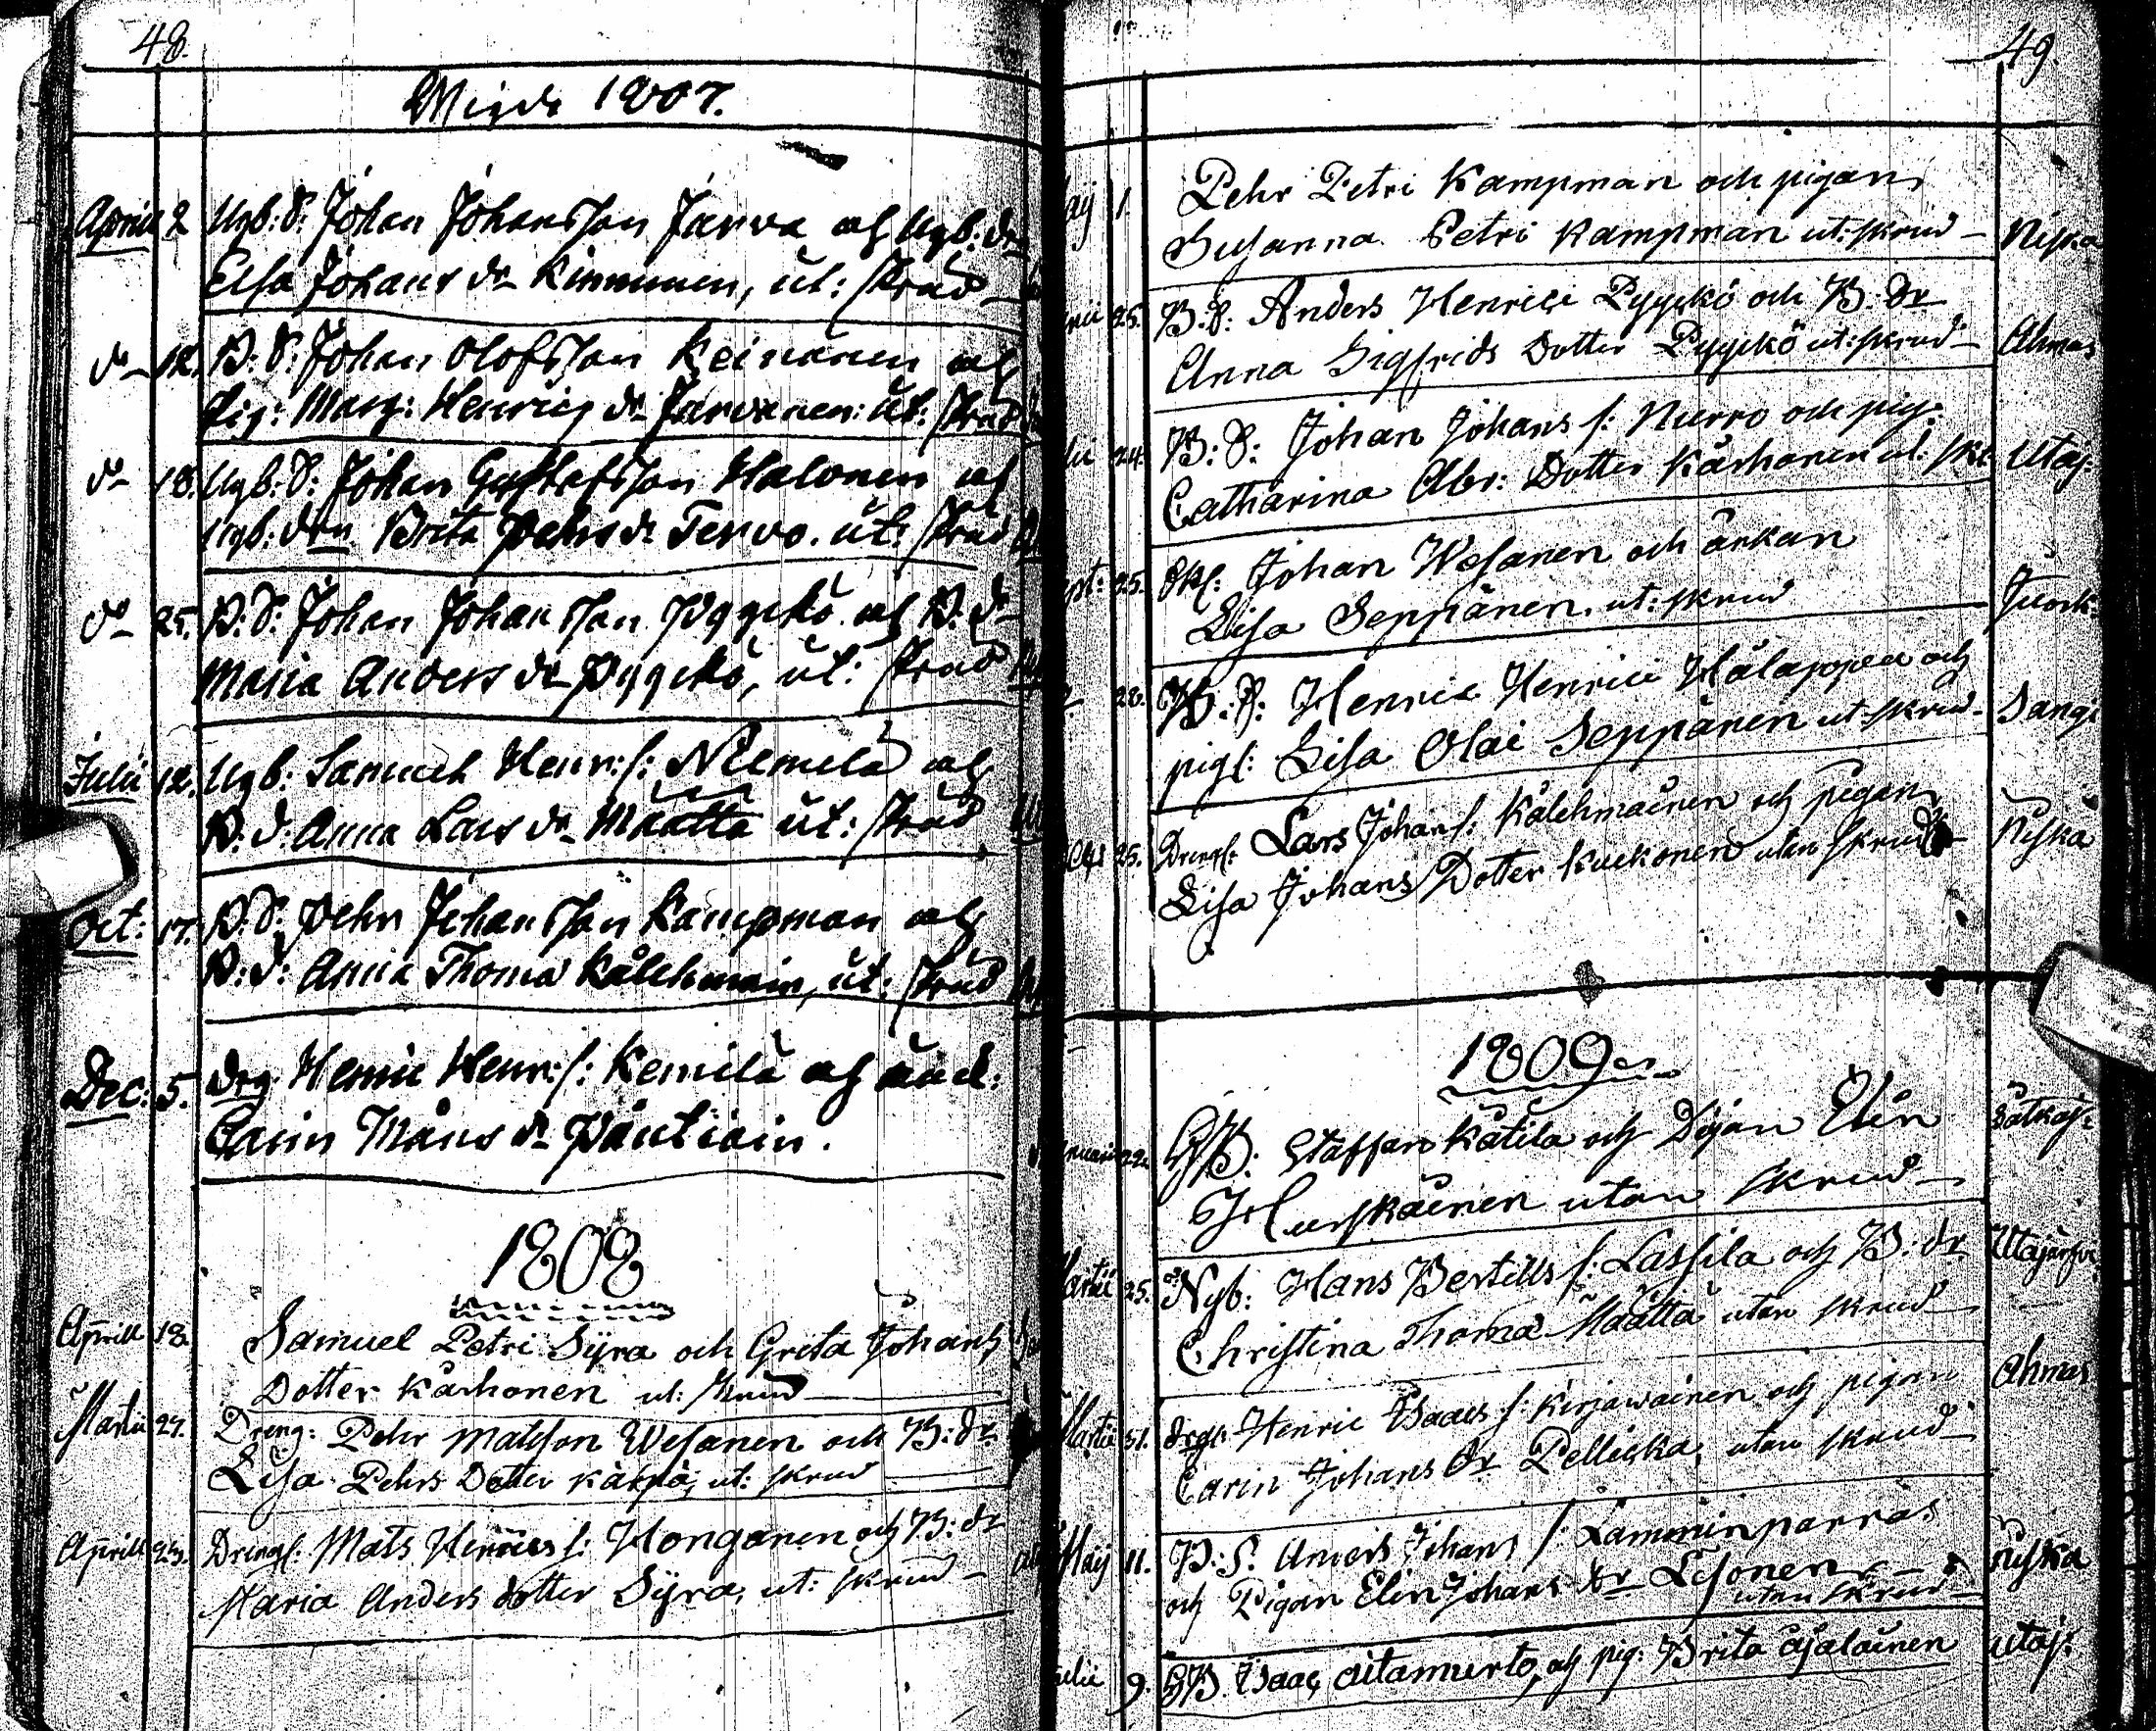 48.
1807.
Aprill 2 Nyb: S: Johan Johansson Jarwa och Nyb: dr
Elsa Johans dr Kinnunen, ut: skrud
do 12. B: S: Johan Olofsson Keinänen och
Pig: Marg: Henrics dr Jarwanen: ut: skrud
do 18. Nyb: S: Johan Gustafsson Halonen och
Nyb: drn Brita Pehrs dr Tervo. ut: skrud
do 25. B: S: Johan Johansson Pyyckö och B: dr
Maria Anders dr Pyyckö, ut: skrud
Julii 12. Nyb: Samuel Henr: s: Niemelä och
B: d: Anna Lars dr Määttä ut: skrud
Oct: 17. B: S: Pehr Johansson Kampman och
B: d: Anna Thoma Kälehmain, ut: skrud
Dec: 5. drg Henric Henr: s: Kemilä och
Carin Måns dr Päntiäin.
1808
Aprill 18 Samuel Petri Syra och Greta Johans
Dotter Kärhonen ut: skrud
Martii 27. Dreng: Pehr Matsson Wesanen och B: dr
Lisa Pehrs Dotter Kärpä, ut: skrud
Aprill 23. Drengs: Mats Henrics s: Honganen och B: dr
Maria Anders dotter Syra, ut: skrud
49.
1. Pehr Petri Kampman och pigan
Susanna Petri Kampman ut: skrud Niska
25. B: S: Anders Henrici Pyyckö och B: dr
Anna Sigfrids Dotter Pyyckö ut: skrud Ahmas
24. B: S: Johan Johans s: Nurro och pig:
Catharina Abr: Dotter Kärhonen ut: skr Utaj:
25. Johan Wesanen och änkan
Lisa Seppänen. ut: skrud Juork:
28. B: S: Henric Henrici Hälappea och
pig: Lisa Olai Seppänen ut: skrud Sangi
25. Drengs: Lars Johans s: Kälehmainen och pigan
Lisa Johans Dotter Kuckonen utan skrud Niska
1809
22. B: Staffan Kätilä och Pigan Elin
Hurskainen utan skrud
Martii 25. Nyb: Hans Bertills s: Lassila och B: dr Utajärfvi
Christina Thoma Määttä utan skrud
Martii 31. drgs: Henric Isaacs s: Kirjawainen och pigan Ahmas
Carin Johans dr Pellicka, utan skrud
Maij 11. B: S: Anders Johans s: Lamminparras
och Pigan Elin Johans dr Lesonen Niska
utan skrud
9. B. Isaac Aitamurto, och pig: Brita Ajalainen Utaj: